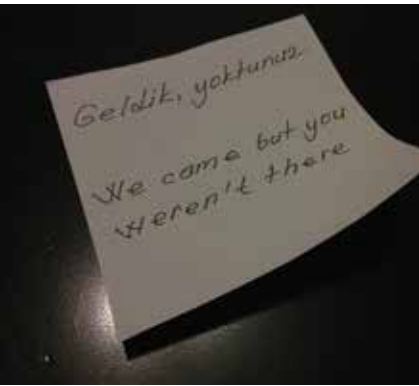 Geldik, yoktunuz
We came but you
weren't there